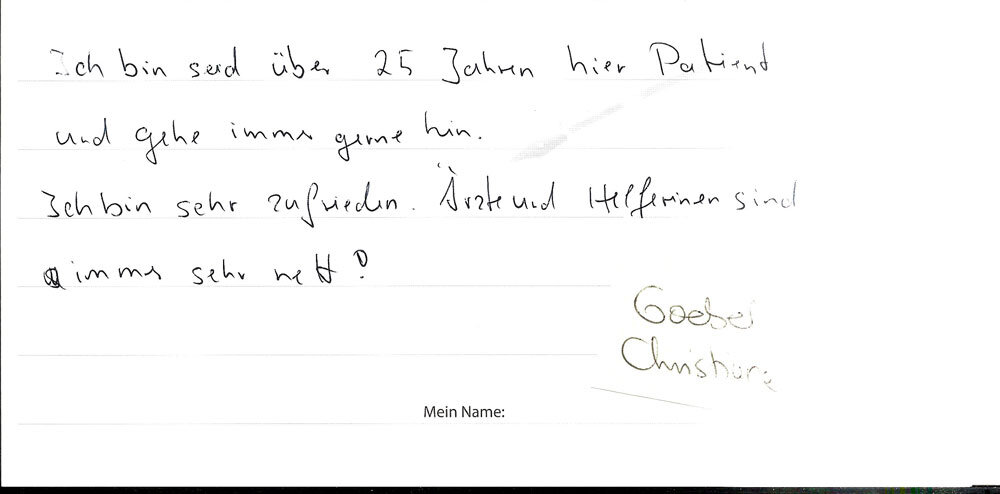 Ich bin seid über 25 Jahren hier Patient
und gehe immer gerne hin.
Ich bin sehr zufrieden. Ärzte und Helferinen sind
immer sehr nett!
Goebel
Christiane
Mein Name: